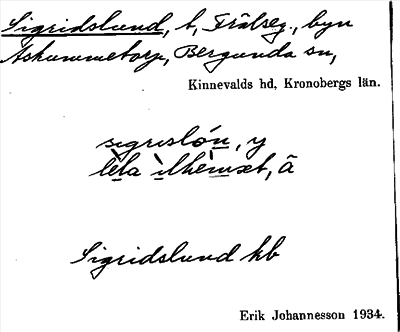 Sigridslund, t, Frälseg., byn
Askummetorp, Bergunda sn,
Kinnevalds hd, Kronobergs län.
sigrɩslón, y
lɩ̀la ɩ̀lhèmsət, ä
Sigridslund hb
Erik Johannesson 1934.